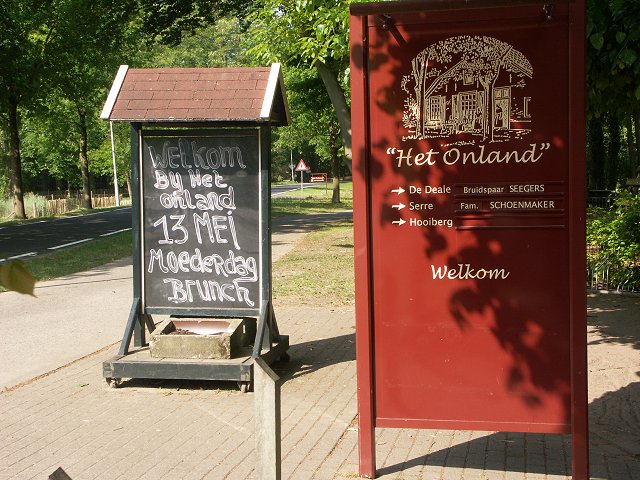 Welkom
Bij Het
onland
13 MEI
Moederdag
Brunch
"Het Onland"
De Deale Bruidspaar SEEGERS
Serre Fam. SCHOENMAKER
Hooiberg
Welkom